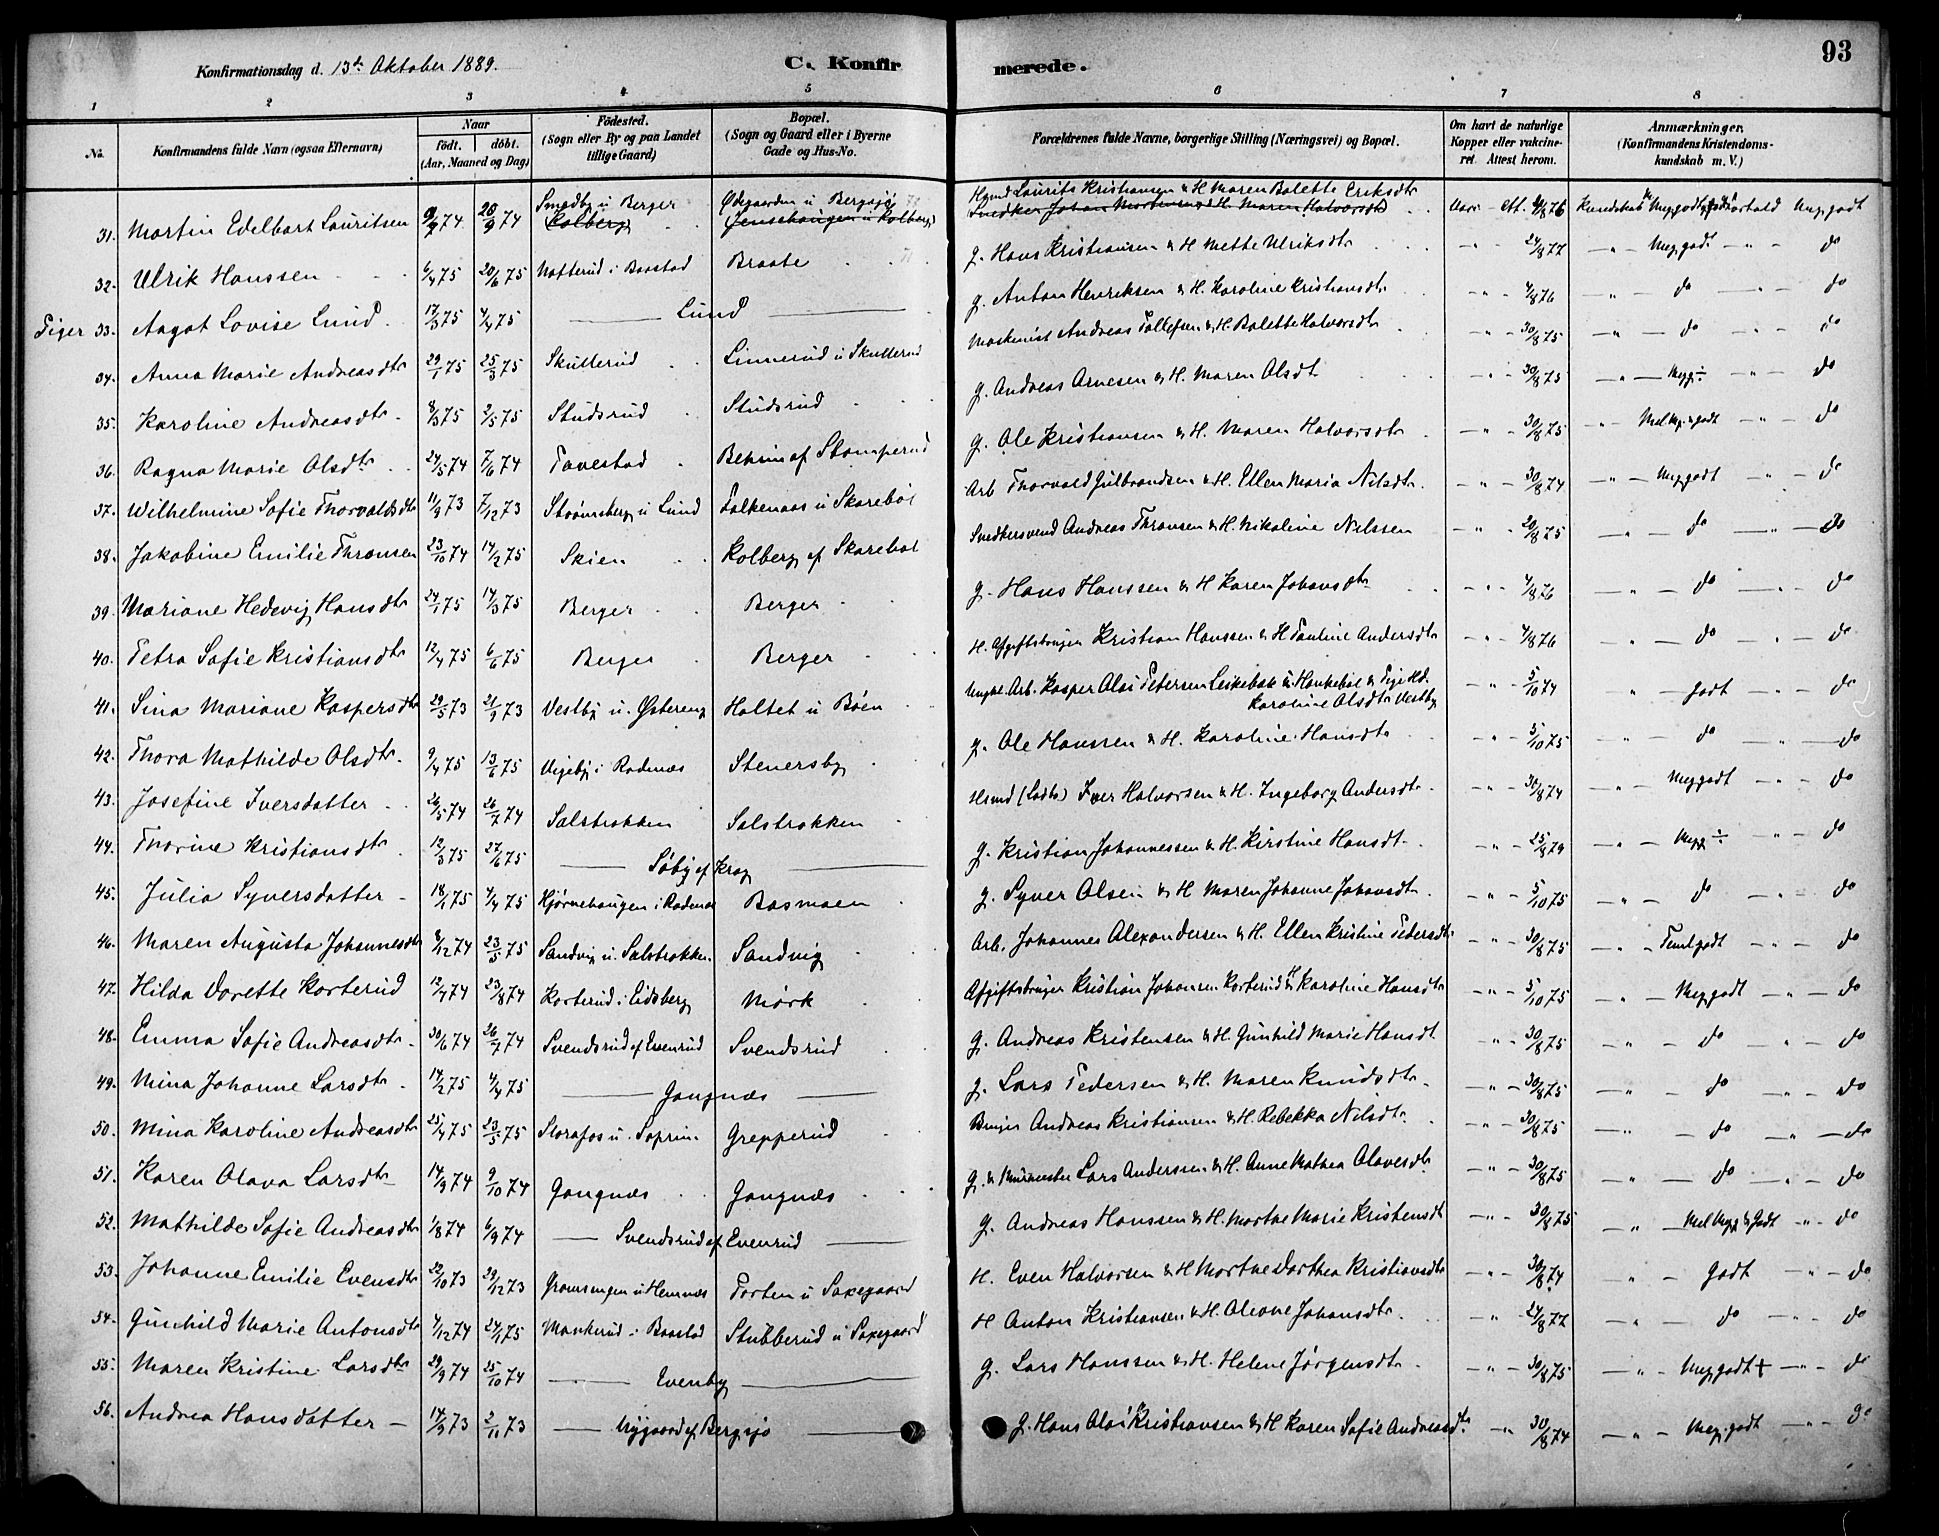 93
Konfirmationsdag d. 13de Oktober 1889. C. Konfirmerede.
1 2 3 4 5 6 7 8
No. Konfirmandens fulde Navn (ogsaa Efternavn) Naar födt. döbt. (Aar, Maaned og Dag) Födested. (Sogn eller By og paa Landet tillige Gaard) Bopæl. (Sogn og Gaard eller i Byerne Gade og Hus-No. Forældrenes fulde Navne, borgerlige Stilling (Næringsvei) og Bopæl. Om havt de naturlige Kopper eller vakcineret. Attest herom. Anmærkninger. (Konfirmandens Kristendomskundskab m. V.)
31. Martin Edelbart Lauritsen 74 20/9 74 Smedby u Berger Kolberg Ødegaarden u Bergsjø Jenshaugen u Kolberg Hsmd Laurits Kristiansen & H Maren Bolette Eriksdtr Snedker Johan Mortensen & H. Maren Halvorsdtr Vacc. Att. 4/8 76 Kundskab Meg. godt Forhold Meg. godt
32. Ulrik Hanssen 6/4 75 20/6 75 Natterud i Baastad Braate g. Hans Kristiansen & H Mette Ulriksdtr 24/8 77 Meg. godt do
Piger 33. Aagot Lovise Lund 17/3 75 4/4 75 Lund g. Anton Henriksen & H. Karoline Kristiansdtr 4/8 76 do do
34. Anna Marie Andreasdtr 29/1 75 25/3 75 Skullerud Linnerud u Skullerud Maskinist Andreas Tollefsen & H. Bolette Halvorsdtr 30/8 75 do do
35. Karoline Andreasdtr 8/3 75 2/5 75 Studsrud Studsrud g. Andreas Arnesen & H. Maren Olsdtr 30/8 75 Megg ÷ do
36. Ragna Marie Olsdtr 24/5 74 7/6 74 Tavestad af Stomperud g. Ole Kristiansen & H. Maren Halvorsdtr 30/8 75 Mel Mg & godt do
37. Wilhelmine Sofie Thorvaldsdtr 11/9 73 7/12 73 Strømsberg u Lund Falkenaas u Skarebøl Arb Thorvald Gulbrandsen & H. Ellen Maria Nilsdtr 30/8 74 Meg godt do
38. Jakobine Emilie Thransen 23/10 74 14/2 75 Skien Kolberg af Skarebøl Snedkersvend Andreas Thransen & H. Nikoline Nilssen 20/8 75 do do
39. Mariane Hedevig Hansdtr 24/1 75 14/3 75 Berger Berger g. Hans Hanssen & H Karen Johansdtr 4/8 76 do do
40. Petra Sofie Kristiansdtr 12/4 75 6/6 75 Berger Berger H. Afgiftsbruger Kristian Hanssen & H Pauline Andersdtr 4/8 76 do do
41. Sina Mariane Kaspersdtr 29/5 73 21/9 73 Vestby u. Østereng Holtet u Böen Ungkl. Arb. Kasper Olai Petersen Leikebak u Haukebøl & Pige Hd. Karoline Olsdtr Vestby 5/10 74 godt do
42. Thora Mathilde Olsdtr 9/4 75 13/6 75 Vigeby i Rødenæs Stenersby g. Ole Hanssen & H. Karoline Hansdtr 5/10 75 do do
43. Josefine Iversdatter 26/5 74 26/7 74 Salstrokken Salstrokken Hsmd Iver Halvorsen & H. Ingeborg Andersdtr 30/8 74 Meg godt do
44. Thorine Kristiansdtr 12/3 75 27/6 75 Söby af Krog g. Kristian Johannessen & H. Kirstine Hansdtr 25/8 79 Megg ÷ do
45. Julia Syversdatter 18/1 75 4/4 75 Hjørnehaugen i Rødenæs Basmoen g. Syver Olsen & H Maren Johanne Johansdtr 5/10 75 do do
46. Maren Augusta Johannesdtr 8/12 74 23/5 75 Sandvig u. Salstrokken Sandvig Arb. Johannes Alexandersen & H. Ellen Kristine Pedersdtr 30/8 75 Teml godt do
47. Hilda Dorette Korterud 12/7 74 23/8 74 Korterud i Eidsberg Mørk Afgiftsbruger Kristian Johansen Korterud & H Karoline Hansdtr 5/10 75 Meg godt do
48. Emma Sofie Andreasdtr 30/6 74 26/7 74 Svendsrud af Evenrud Svendsrud g. Andreas Kristensen & H. Gunhild Marie Hansdt 30/8 75 do do
49. Mina Johanne Larsdtr 14/2 75 4/4 75 Gangnæs g. Lars Pedersen & H. Maren Knudsdtr 30/8 75 do do
50. Mina Karoline Andreasdtr 25/4 75 23/5 75 Storafos u. Soprim Grepperud Bruger Andreas Kristiansen & H. Rebekka Nilsdtr 30/8 75 do do
51. Karen Olava Larsdtr 14/9 74 9/10 74 Gangnæs Gangnæs g. & Murmester Lars Anderssen & H. Anne Mathea Olavesdtr 30/8 75 do do
52. Mathilde Sofie Andreasdtr 1/8 74 6/9 74 Svendsrud af Evenrud g. Andreas Hanssen & H. Marthe Marie Kristensdt 30/8 75 Mel Meg & Godt do
53. Johanne Emilie Evensdtr 22/10 73 29/12 73 u Hemnæs Torten u Saxegaard H. Even Halvorsen & H Marthe Dorthea Kristiansdtr 30/8 74 godt do
54. Gunhild Marie Antonsdtr 4/12 74 24/1 75 Mankerud i Baastad Stubberud u Saxegaard H Anton Kristiansen & H. Oleane Johansdtr 24/8 77 do do
55. Maren Kristine Larsdtr 29/9 74 25/10 74 Evenby g. Lars Hanssen & H. Helene Jørgensdtr 30/8 75 Meg. godt + do
56. Andrea Hansdatter 14/9 73 2/11 73 Nygaard af Bergsjø G. Hans Olai Kristiansen & H Karen Sofie Andreasdtr 30/8 74 Meg. godt do